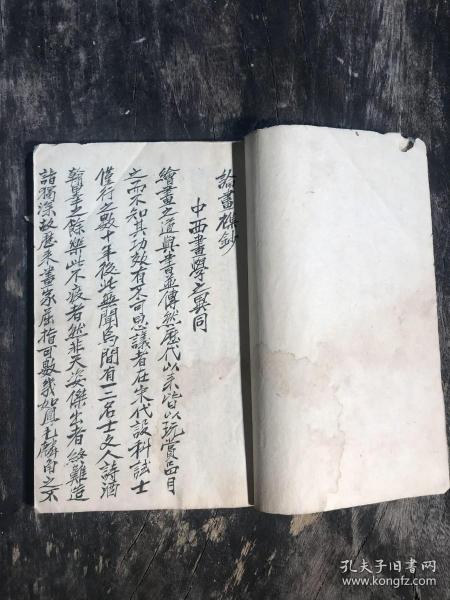 論畫雜鈔
中西畫學之異同
繪畫之道與書並傳然歷代以來皆以玩賞品目
之而不知其功效有不可思議者在宋代設科試士
僅行之數十年後此無聞焉間有一二名士文人詩酒
翰墨之餘樂此不疲者然非天姿傑出者終難造
詣獨深故歷來畫家屈指可數幾如鳳毛麟角之不
孔夫子旧书网
www.kongfz.com